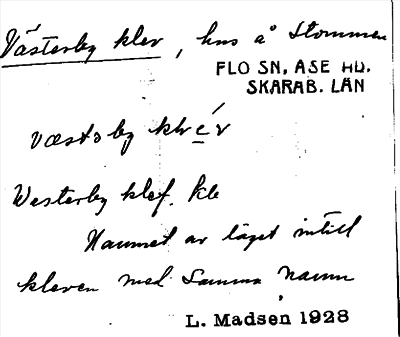 Västerby klev, hus å Stommen
FLO SN, ÅSE HD.
SKARAB. LÄN
væstsby klev
Westerby klef. kb
Namnet av läget intill
kleven med samma namn
L. Madsen 1928